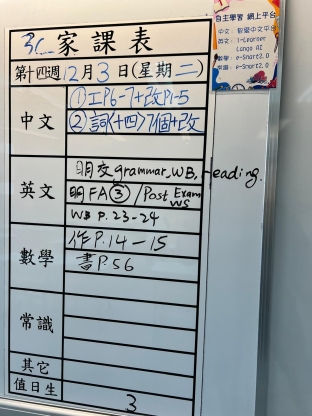 3C 家課表
第十四週12月3日(星期二)
中文
①工P6-7+改P1-5
②詞(十四)7個+改
英文
明交grammar, WB, Reading.
明FA③/Post Exam WS
WB P.23-24
數學
作P.14-15
書P.56
常識
其它
值日生
3
自主學習 網上平台
中文: 智愛中文平台
英文: i-Learner
Lango AI
數學: e-Smart2.0
常識: e-Smart2.0